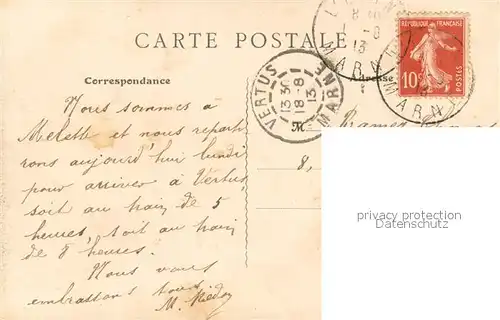 CARTE POSTALE
Correspondance
Adresse
RÉPUBLIQUE FRANÇAISE
10c
POSTES
VERTUS
13 30
18 - 8
13
MARNE
MARNE
MARNE
Nous sommes à
et nous repart
irons aujourd'hui lundi
pour arriver à Vertus,
soit au train de 5
heures, soit au train
de 8 heures.
Nous vous
embrassons tous
M.
8,
privacy protection
Datenschutz